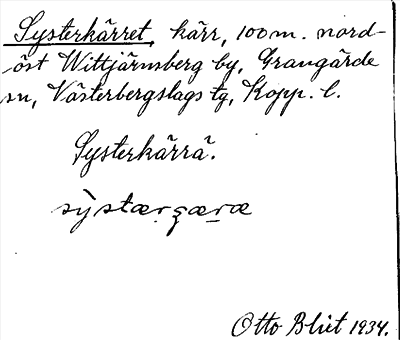 Systerkärret, kärr, 100 m. nord-
öst Wittjärnsberg by, Grangärde
sn, Västerbergslags tg, Kopp. l.
Systerkärrä.
Otto Blixt 1934.